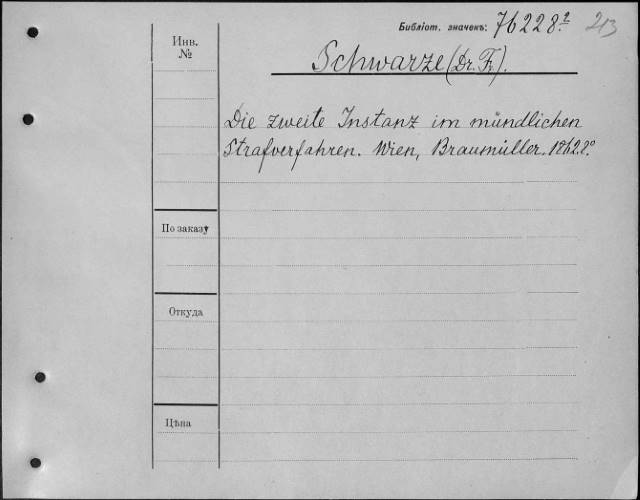 Библіот. значекъ: 76228² 213
Инв.
№
Schwarze (Dr. Fr.).
Die zweite Instanz im mündlichen
Strafverfahren. Wien, Braumüller. 1862. 8º
По заказу
Откуда
Цѣна